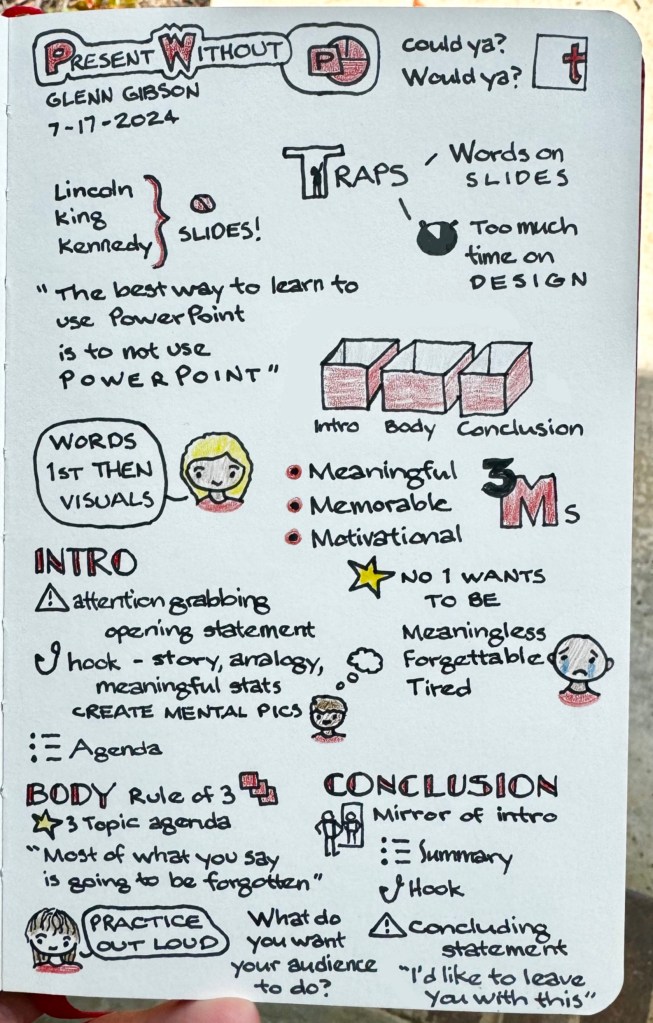 PRESENT WITHOUT P
GLENN GIBSON
7-17-2024
Could ya?
Would ya?
t
Lincoln
King
Kennedy
SLIDES!
TRAPS
Words on
SLIDES
Too much
time on
DESIGN
"The best way to learn to
use PowerPoint
is to not use
POWERPOINT"
Intro Body Conclusion
WORDS
1ST THEN
VISUALS
Meaningful
Memorable
Motivational
3 Ms
INTRO
attention grabbing
opening statement
hook - story, analogy,
meaningful stats
CREATE MENTAL PICS
Agenda
NO 1 WANTS
TO BE
Meaningless
Forgettable
Tired
BODY Rule of 3
3 Topic agenda
"Most of what you say
is going to be forgotten"
PRACTICE
OUT LOUD
What do
you want
your audience
to do?
CONCLUSION
Mirror of intro
Summary
Hook
Concluding
statement
"I'd like to leave
you with this"